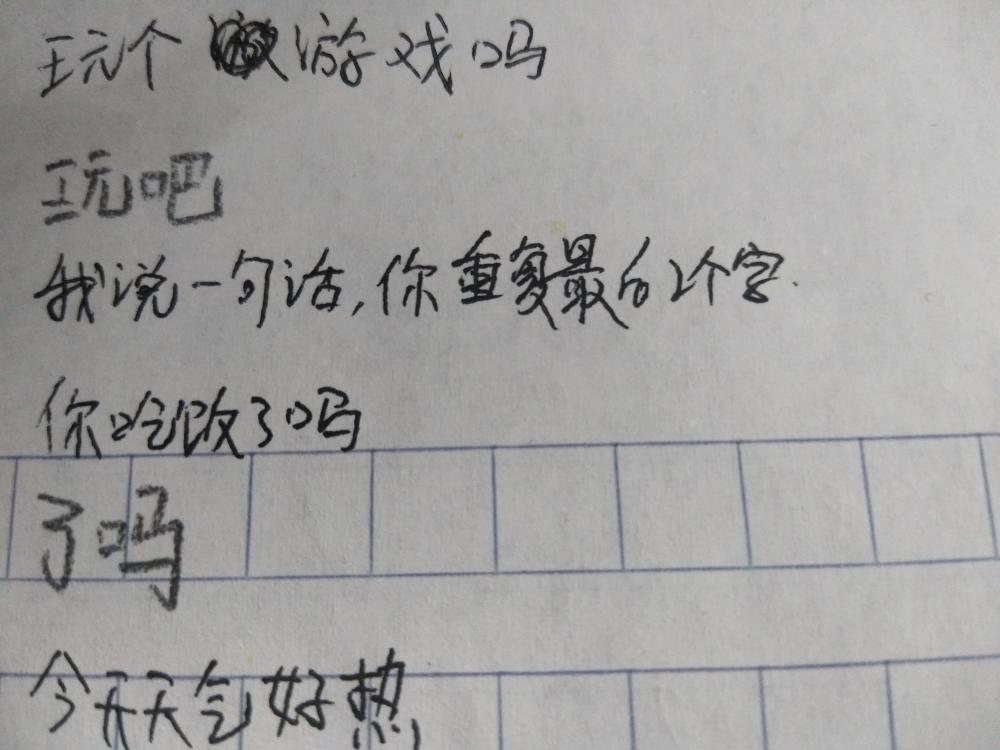 玩个游戏吗
玩吧
我说一句话,你重复最后2个字.
你吃改了吗
了吗
今天天气好热